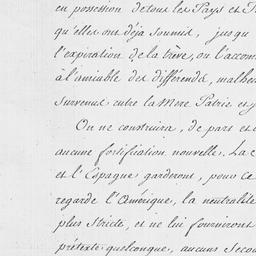 en possession de tous les Pays et
qu'elles ont déja soumis, jusqu
l'expiration de la trève, ou l'accom
à l'amiable des différends, malheu
survenus entre la Mere Patrie et
On ne construira, de part et d
aucune fortification nouvelle. La
et l'Espagne garderont, pour ce
regarde l'Amérique, la neutralité
plus stricte, et ne lui fourniront
prétexte quelconque, aucuns secou